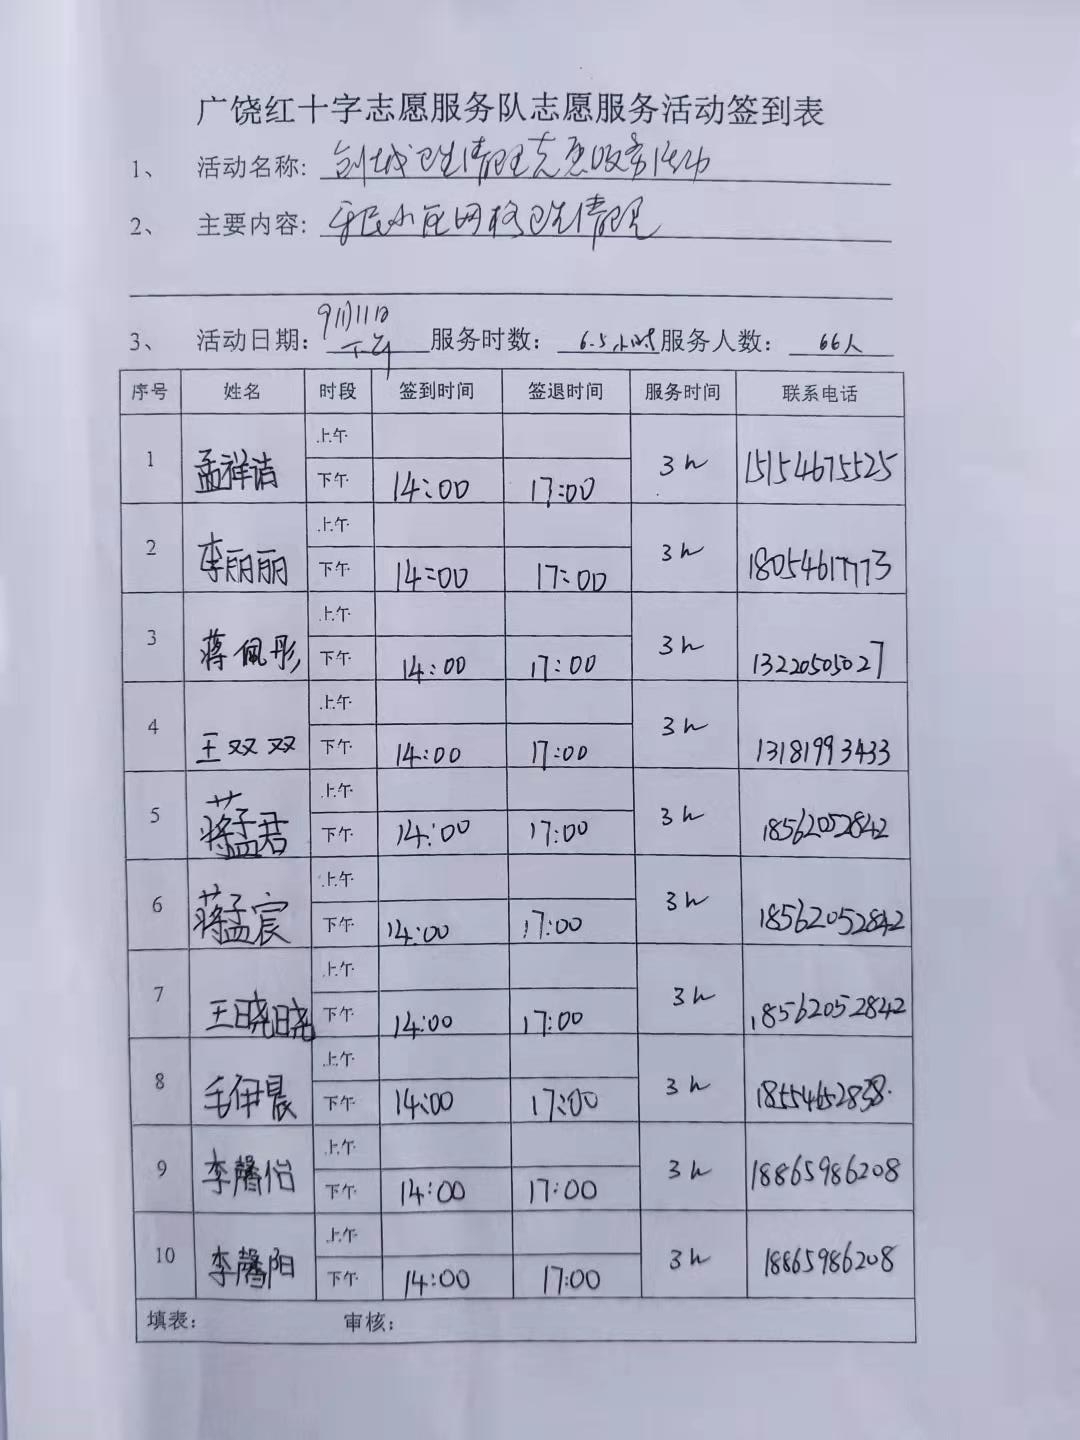 广饶红十字志愿服务队志愿服务活动签到表
1、 活动名称: 创城卫生清理志愿服务活动
2、 主要内容: 小区网格卫生清理
3、 活动日期: 9月11日下午 服务时数: 6.5小时 服务人数: 66人
序号 姓名 时段 签到时间 签退时间 服务时间 联系电话
1 孟祥洁 上午 3h 15154675525
下午 14:00 17:00
2 李丽丽 上午 3h 18054617773
下午 14:00 17:00
3 蒋佩彤 上午 3h 13220505027
下午 14:00 17:00
4 王双双 上午 3h 13181993433
下午 14:00 17:00
5 蒋孟君 上午 3h 18562052842
下午 14:00 17:00
6 蒋孟宸 上午 3h 18562052842
下午 14:00 17:00
7 王晓晓 上午 3h 18562052842
下午 14:00 17:00
8 毛伊晨 上午 3h
下午 14:00 17:00
9 李馨怡 上午 3h 18865986208
下午 14:00 17:00
10 李馨阳 上午 3h 18865986208
下午 14:00 17:00
填表: 审核: